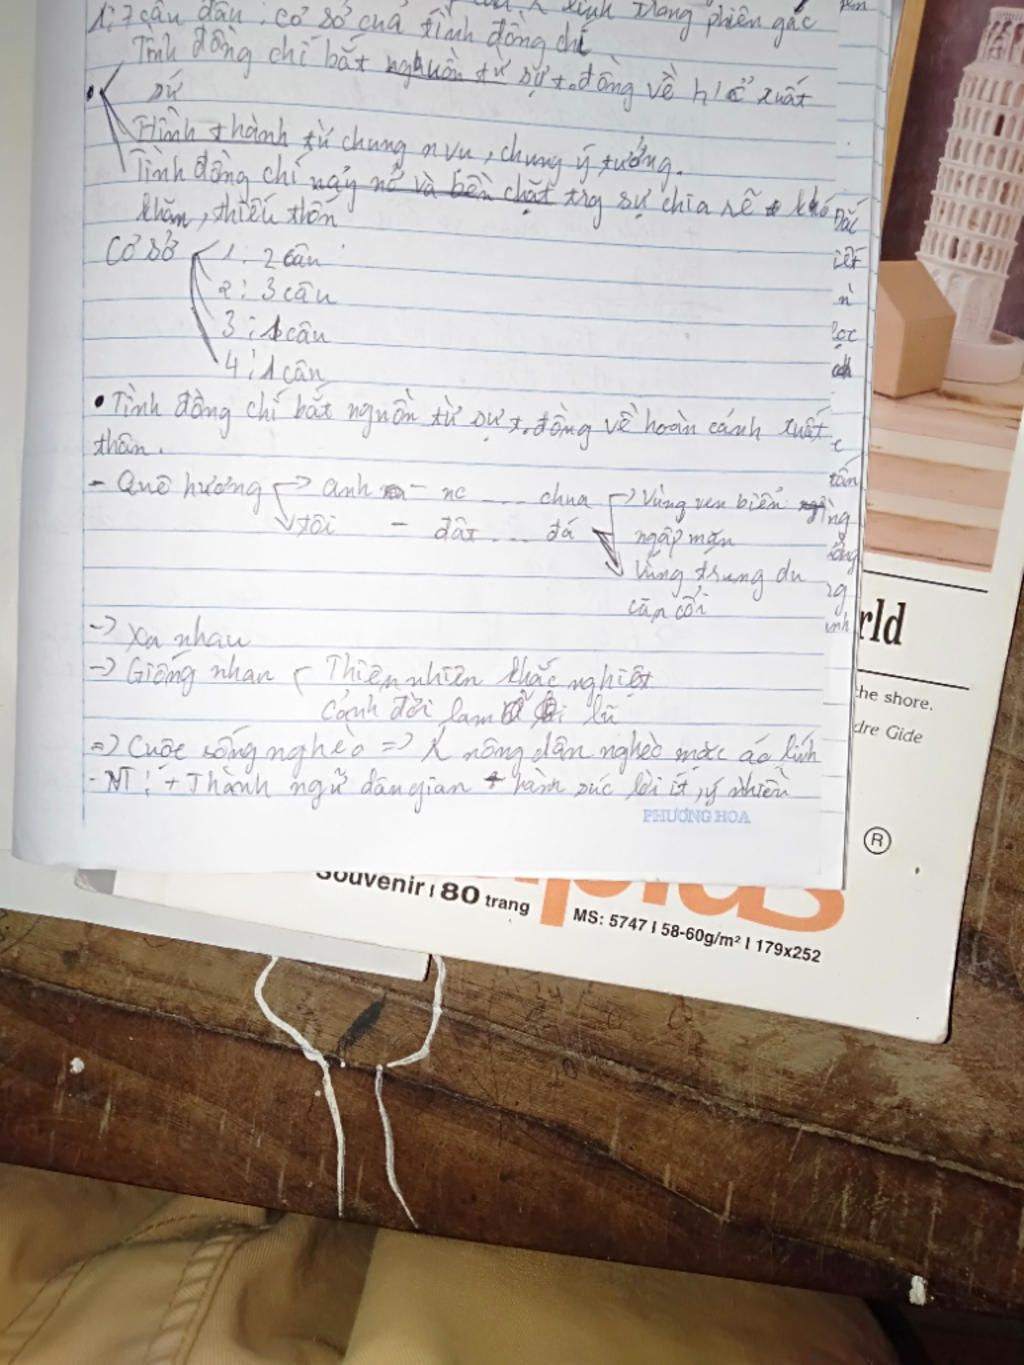 lính trong phiên gác
1: 7 câu đầu: cơ sở của tình đồng chí
Tình đồng chí bắt nguồn từ sự t.đồng về h/c xuất
sứ
Hình thành từ chung n vụ, chung ý tưởng.
Tình đồng chí nảy nở và bền chặt trg sự chia sẽ khó
khăn, thiếu thốn
Cơ sở
1: 2 câu
2: 3 câu
3: 1 câu
4: 1 câu
• Tình đồng chí bắt nguồn từ sự t.đồng về hoàn cảnh xuất
thân.
- Quê hương -> anh - nc ... chua -> Vùng ven biển
-> tôi - đất ... đá ngập mặn
-> Vùng trung du
cằn cỗi
-> Xa nhau
-> Giống nhau Thiên nhiên khắc nghiệt
Cảnh đời lam lũ
=> Cuộc sống nghèo => nông dân nghèo mặc áo lính
- NT: + Thành ngữ dân gian + hàm súc lời ít, ý nhiều
PHƯƠNG HOA
rld
the shore.
dre Gide
®
Souvenir | 80 trang
plus
MS: 5747 | 58-60g/m² | 179x252